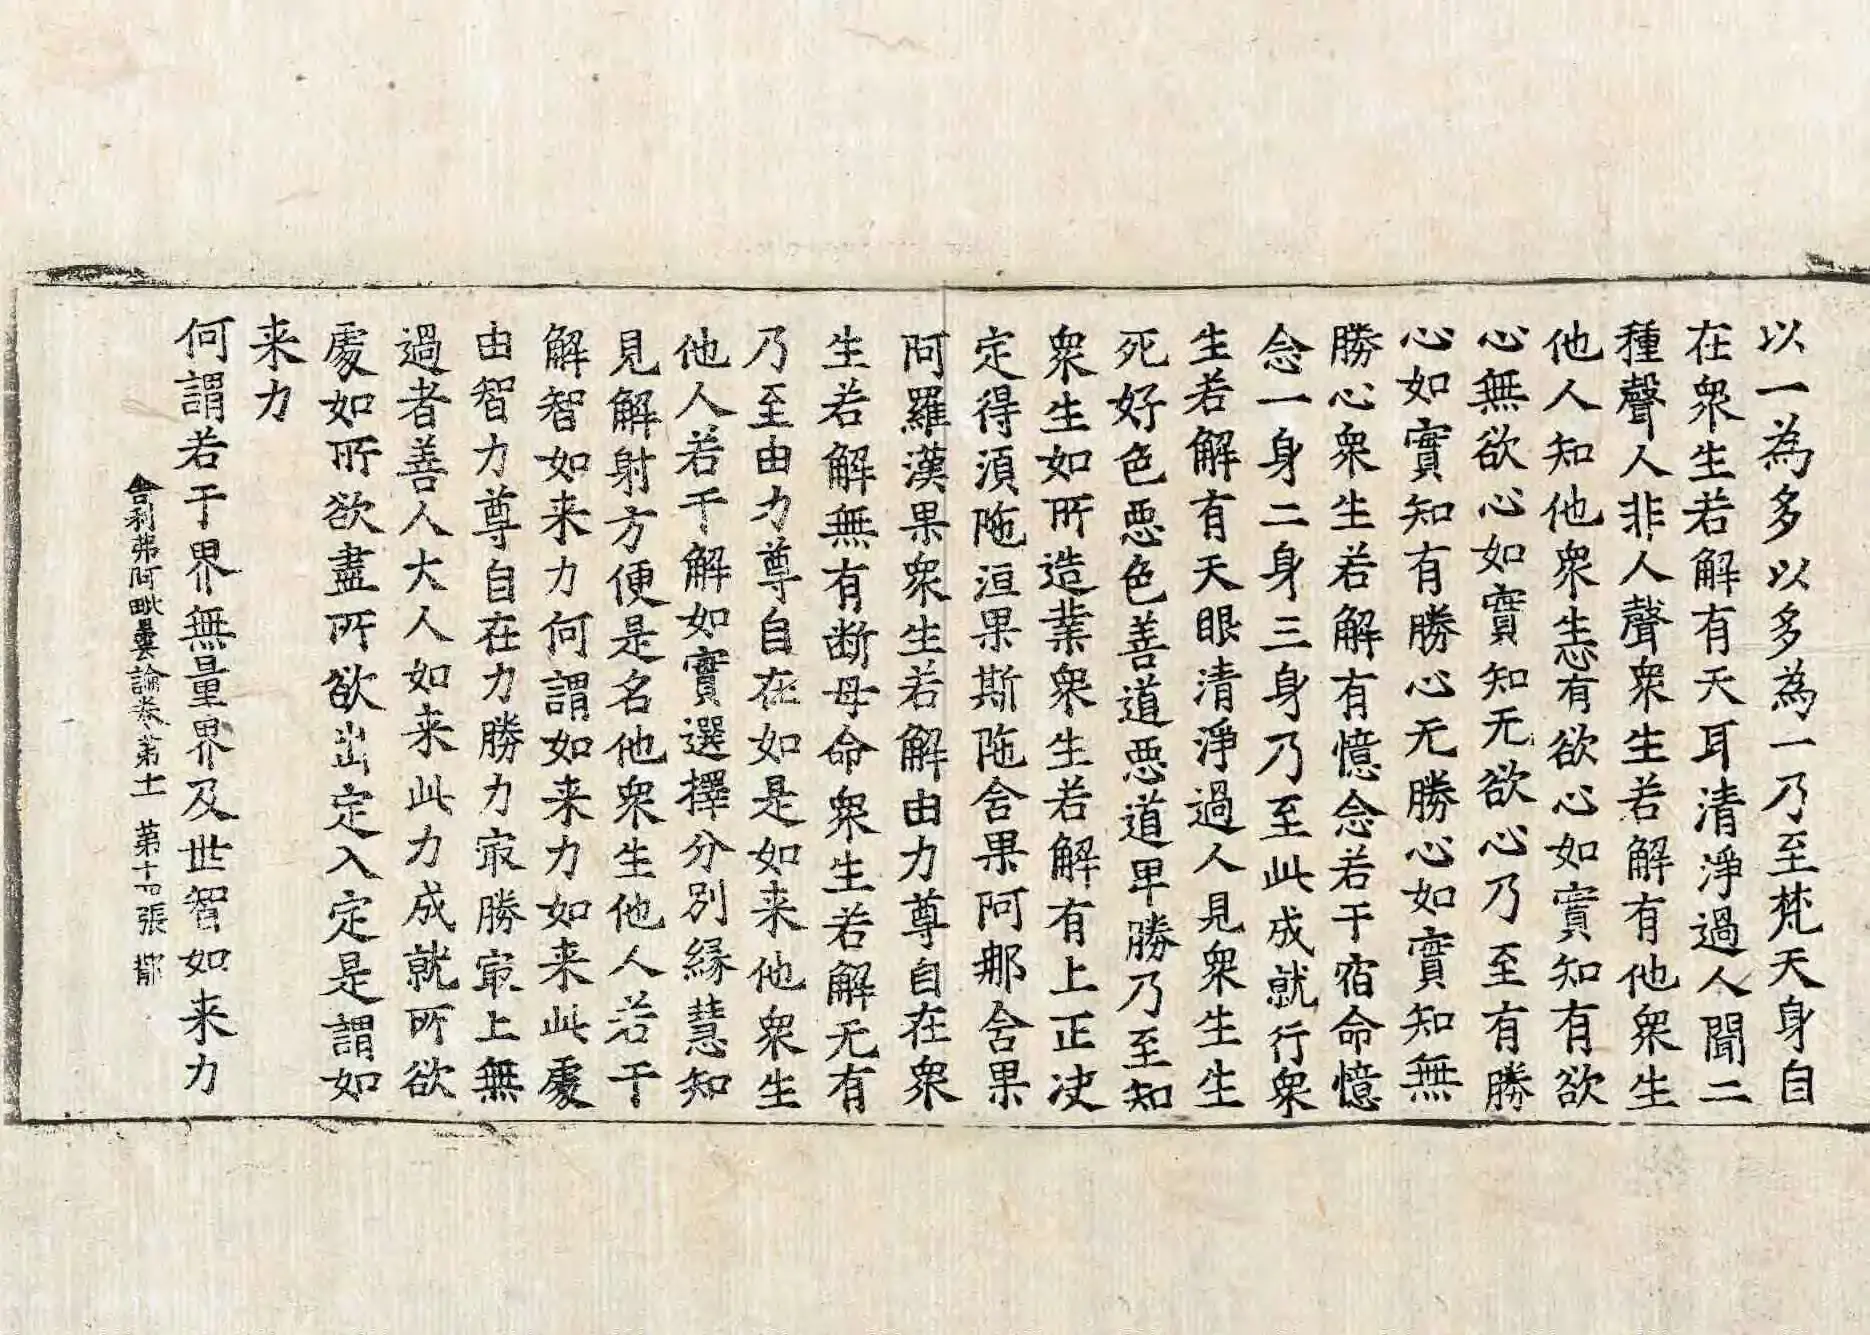 以一為多以多為一乃至梵天身自
在衆生若解有天耳清淨過人聞二
種聲人非人聲衆生若解有他衆生
他人知他衆生恚有欲心如實知有欲
心無欲心如實知无欲心乃至有勝
心如實知有勝心无勝心如實知無
勝心衆生若解有憶念若干宿命憶
念一身二身三身乃至此成就行衆
生若解有天眼清淨過人見衆生生
死好色惡色善道惡道卑勝乃至知
衆生如所造業衆生若解有上正决
定得湏陁洹果斯陁含果阿那含果
阿羅漢果衆生若解由力尊自在衆
生若解無有断母命衆生若解无有
乃至由力尊自在如是如来他衆生
他人若干解如實選擇分別縁慧知
見解射方便是名他衆生他人若干
解智如来力何謂如来力如来此處
由智力尊自在力勝力㝡勝㝡上無
過者善人大人如来此力成就所欲
處如所欲盡所欲出定入定是謂如
来力
何謂若干界無量界及世智如来力
舍利弗阿毗曇論卷第十一 第十 張